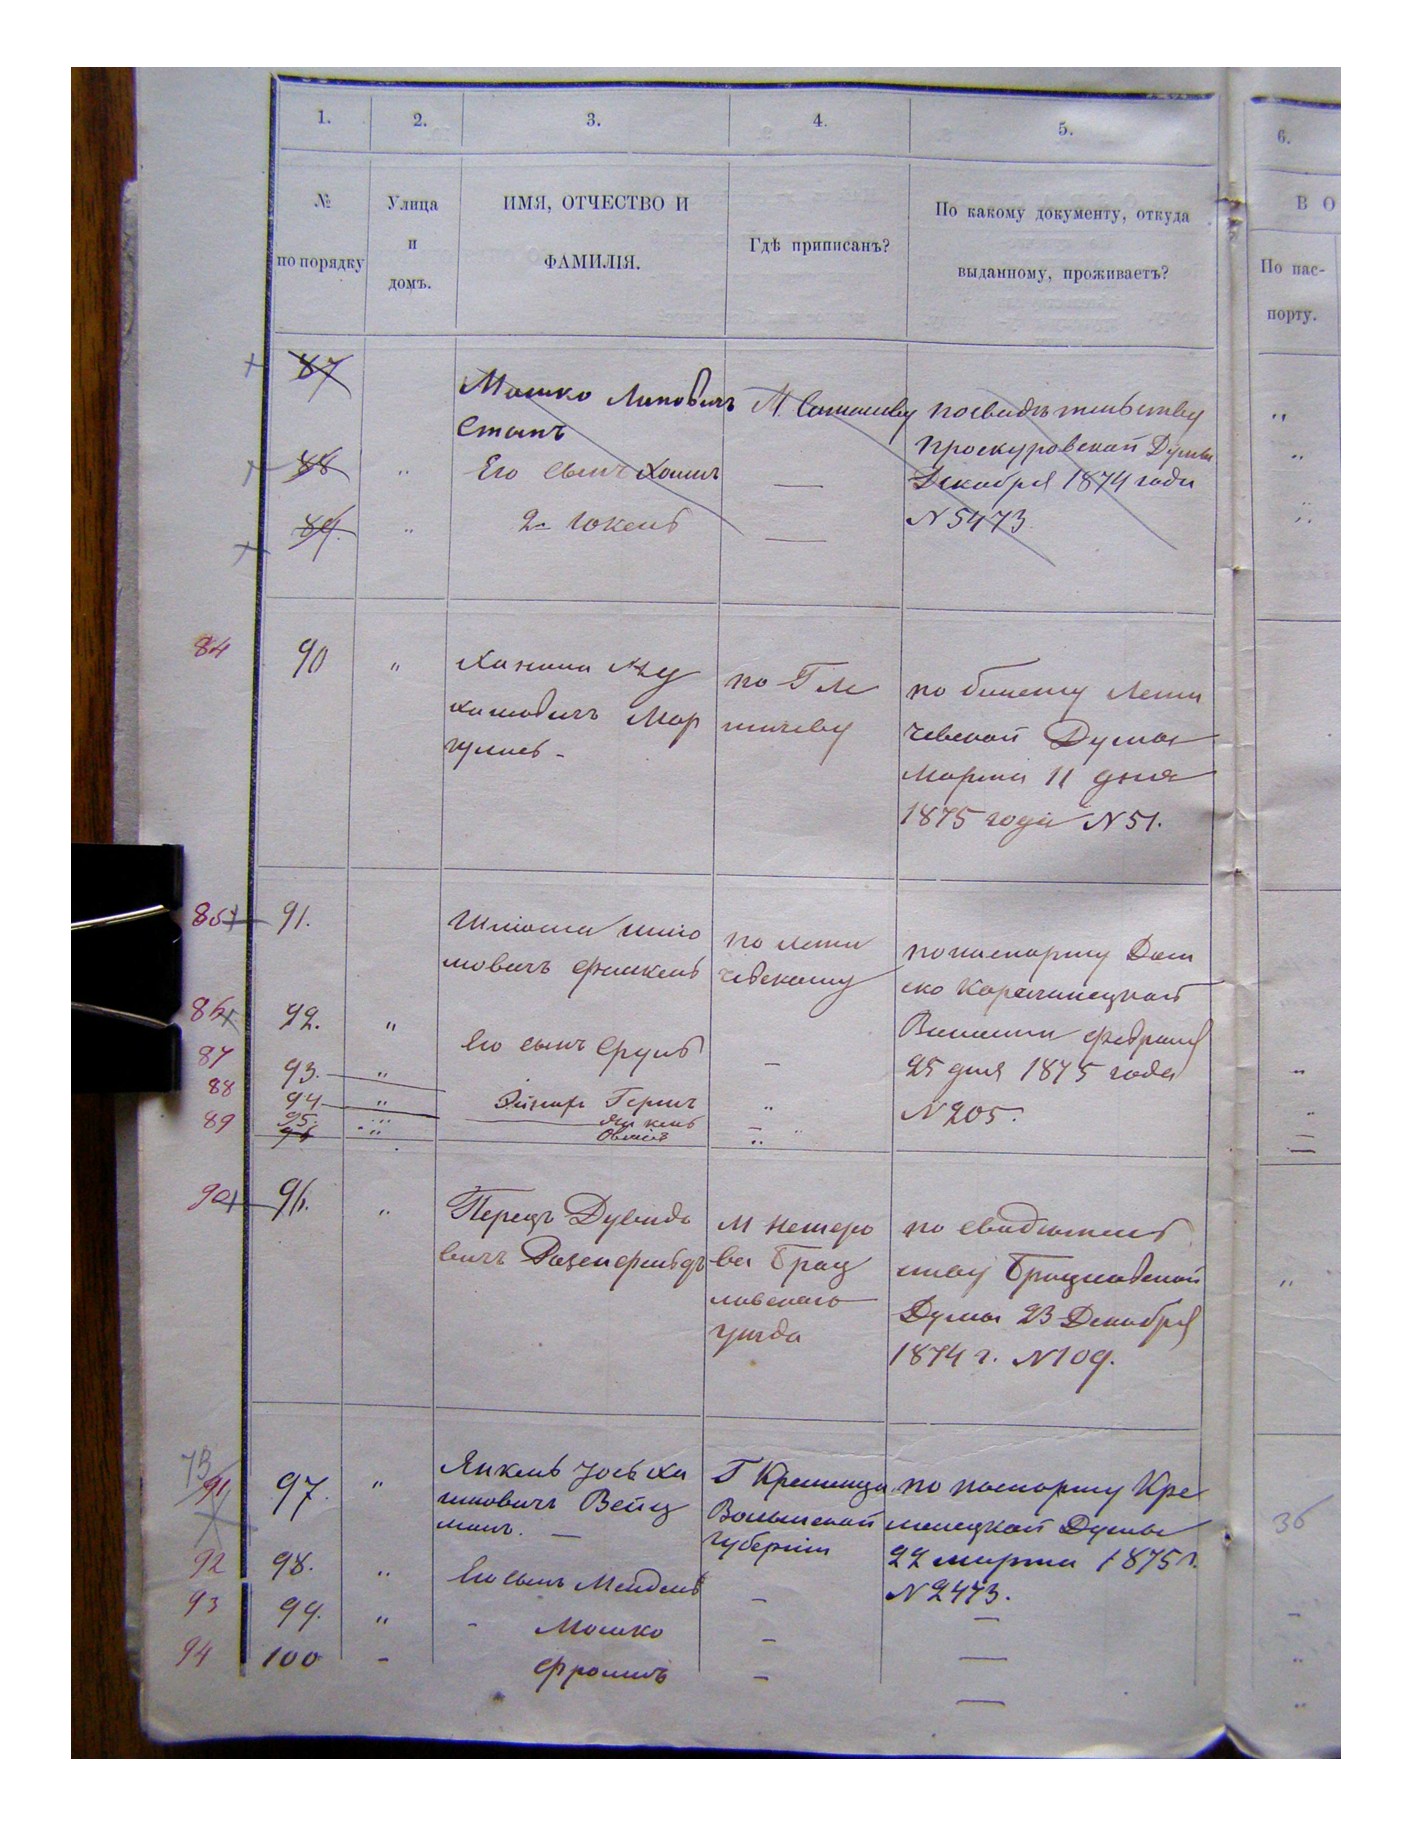 1. 2. 3. 4. 5. 6.
№ по порядку
Улица и домъ.
ИМЯ, ОТЧЕСТВО И
ФАМИЛІЯ.
Гдѣ приписанъ?
По какому документу, откуда
выданному, проживаетъ?
В О
По пас-
порту.
87
Мошко Лейбовичъ
М.
по свидѣтельству
Проскуровской Думы
88 " Его сынъ Хаимъ —
Декабря 1874 года
89. " 2- Іокель —
N 5473.
84 90 "
Мар
гулисъ -
по Г Ле
тичеву
по билету Лети
чевской Думы
Марта 11 дня
1875 года N 51.
85 91.
Шлиома Шлио
мовичъ Финкель
по Лети
чевскому
по паспорту
Волости Февраля
25 дня 1875 года
N 205.
86 92. " Его сынъ Сруль —
87 93. "
88 94 " Гершъ "
89 95. " Янкель —
96
90 96. "
Перецъ Дувидо
вичъ Розенфельдъ
М
ва Брац
лавскаго
уѣзда
по свидѣтель
ству Брацлавской
Думы 23 Декабря
1874 г. N 109.
73
91 97. "
Янкель Іось Ха
имовичъ Вейц
манъ. —
Г Кременца
Волынской
губерніи
по паспорту Кре
менецкой Думы
22 марта 1875 г.
N 2473.
36
92 98. " Его сынъ Мендель —
93 99. " - Мошко —
94 100 - Фроимъ —